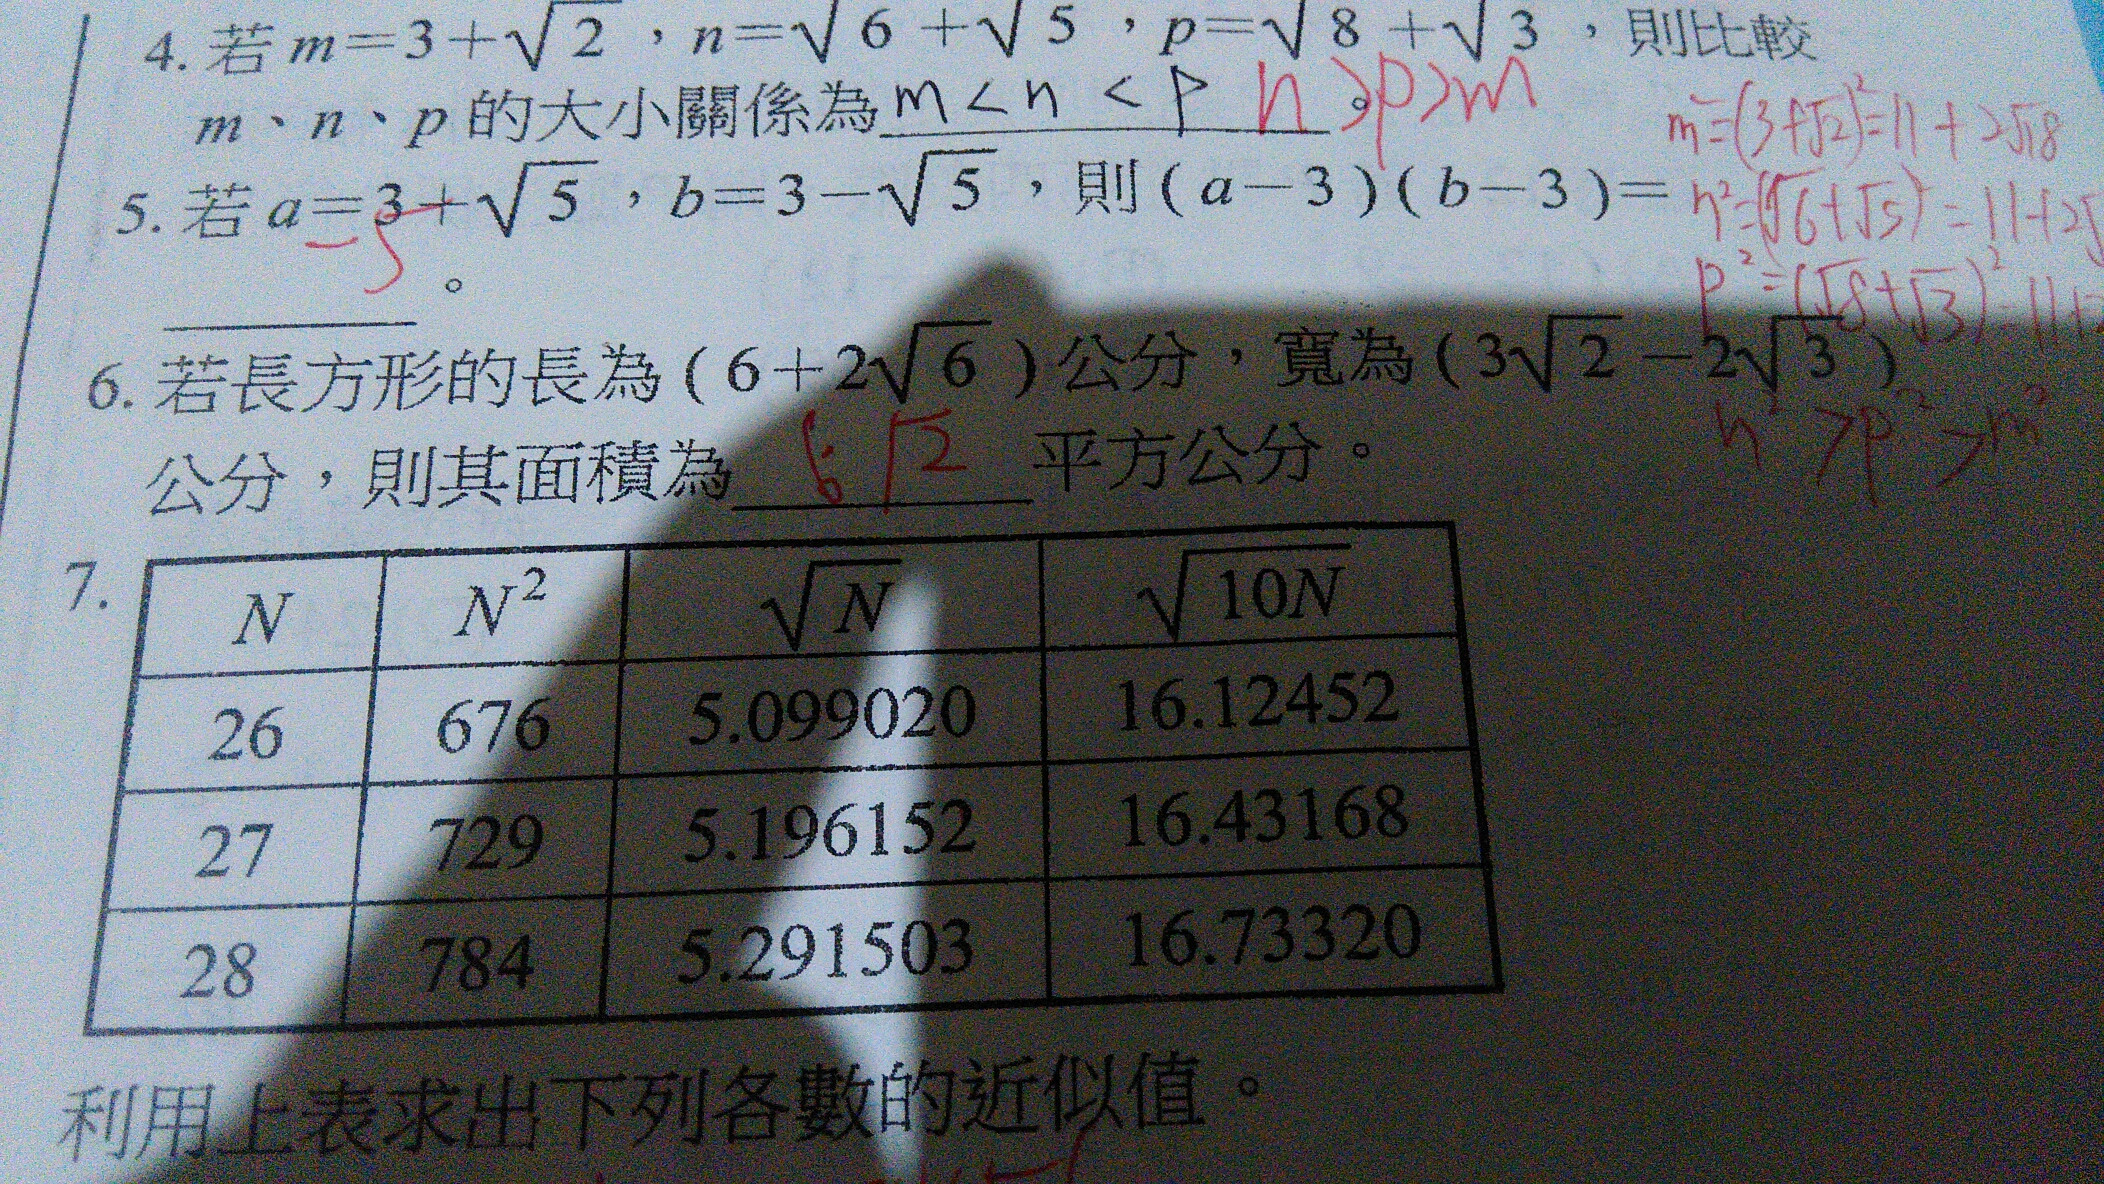 4. 若 m=3+√2，n=√6+√5，p=√8+√3，則比較
m、n、p 的大小關係為 m<n<p 。 n>p>m
m²=(3+√2)²=11+2√18
5. 若 a=3+√5，b=3-√5，則(a-3)(b-3)=
n²=(√6+√5)²=11+2√
-5 。
p²=(√8+√3)²=11+2
6. 若長方形的長為(6+2√6)公分，寬為(3√2-2√3)
n²>p²>m²
公分，則其面積為 6√2 平方公分。
7.
N N² √N √10N
26 676 5.099020 16.12452
27 729 5.196152 16.43168
28 784 5.291503 16.73320
利用上表求出下列各數的近似值。